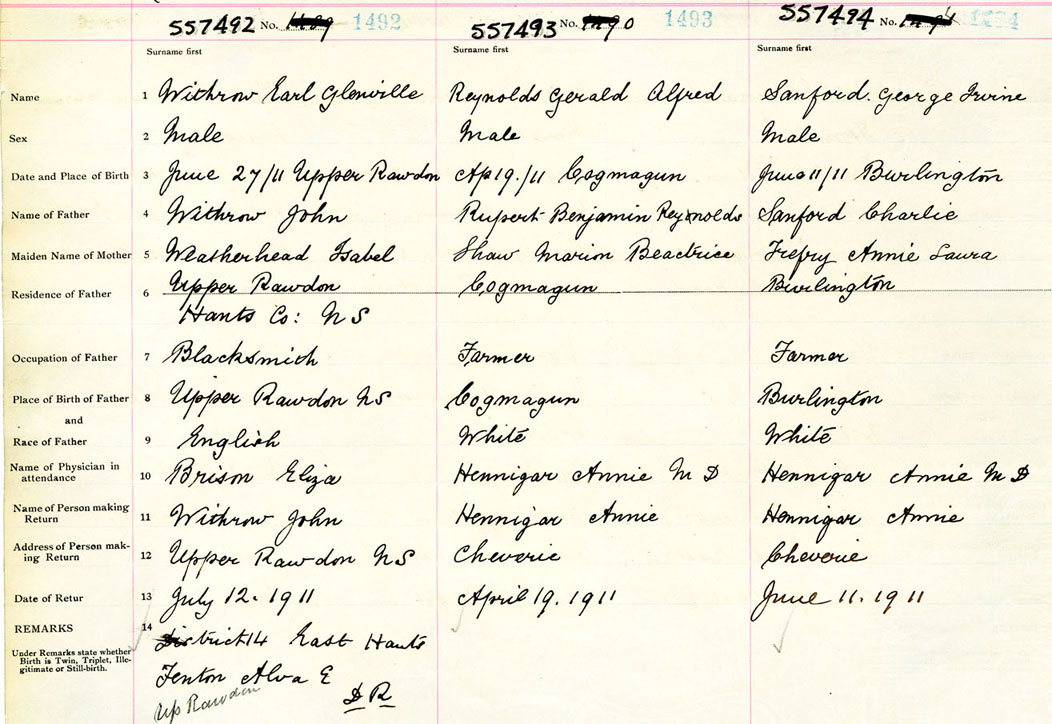 557492 No. 1492 557493 No. 1490 1493 557494 No. 1494
Surname first Surname first Surname first
Name 1 Withrow Earl Glenville Reynolds Gerald Alfred Sanford. George Irvine
Sex 2 Male Male Male
Date and Place of Birth 3 June 27/11 Upper Rawdon Ap 19./11 Cogmagun June 11/11 Burlington
Name of Father 4 Withrow John Rupert Benjamin Reynolds Sanford Charlie
Maiden Name of Mother 5 Weatherhead Isabel Shaw Marion Beactrice Trefry Annie Laura
Residence of Father 6 Upper Rawdon Cogmagun Burlington
Hants Co: NS
Occupation of Father 7 Blacksmith Farmer Farmer
Place of Birth of Father 8 Upper Rawdon NS Cogmagun Burlington
and
Race of Father 9 English White White
Name of Physician in
attendance 10 Brison Eliza Hennigar Annie M D Hennigar Annie M D
Name of Person making
Return 11 Withrow John Hennigar Annie Hennigar Annie
Address of Person mak-
ing Return 12 Upper Rawdon NS Cheverie Cheverie
Date of Retur 13 July 12. 1911 April 19. 1911 June 11. 1911
REMARKS 14 District 14 East Hants
Under Remarks state whether
Birth is Twin, Triplet, Ille-
gitimate or Still-birth.
Fenton Alva E
D R
Up Rawdon